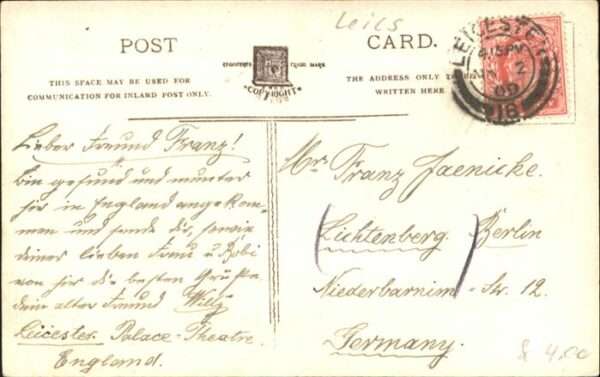 Leics
POST CARD.
THIS SPACE MAY BE USED FOR
COMMUNICATION FOR INLAND POST ONLY.
COPYRIGHT
THE ADDRESS ONLY TO BE
WRITTEN HERE
LEICESTER
4.15 PM
2
09
816
Lieber Freund Franz!
bin gesund und munter
hir in England angekom-
men und sende dir, sowie
deiner lieben Frau u. Bobi
von hir die besten Grüße
dein alter Freund Willy
Leicester. Palace-Theatre.
England.
Mr. Franz Jaenicke.
(Lichtenberg.) Berlin
Niederbarnim-Str. 12.
Germany.
4.00